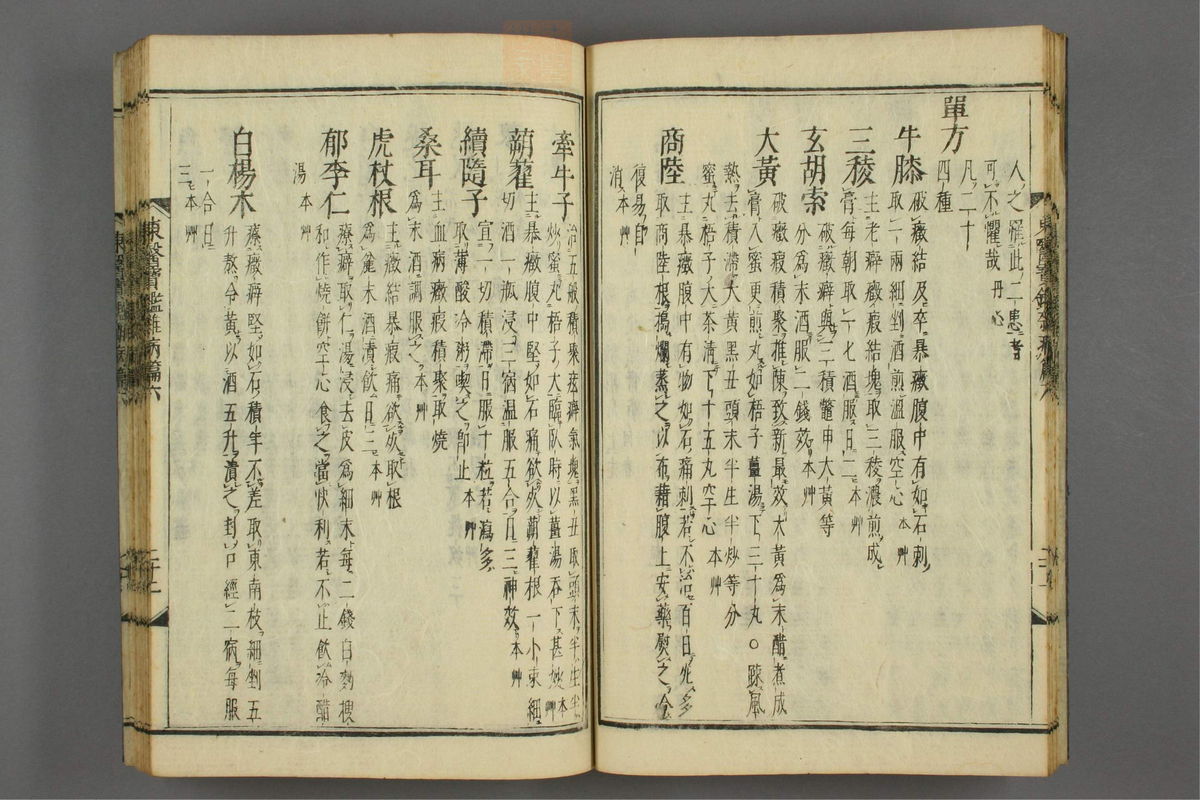 人之罹此二患者
可不懼哉 丹心
單方
凡二十
四種
牛膝
破癥結及卒暴癥腹中有如石刺
取一兩細剉酒煎溫服空心 本艸
三稜
主老癖癥瘕結塊取三稜濃煎成
膏每朝取一匕酒服日二 本艸
玄胡索
破癥癖與三稜鼈甲大黃等
分爲末酒服二錢效 本艸
大黃
破癥瘕積聚推陳致新最效大黃爲末醋煮成
膏入蜜更煎丸如梧子薑湯下三十丸○踈風
熱去積滯大黃黑丑頭末半生半炒等分
蜜丸梧子大茶淸下十五丸空心 本艸
商陸
主暴癥腹中有物如石痛刺若不治百日死多
取商陸根搗爛蒸之以布藉腹上安藥熨之冷
復易卽
消 本艸
牽牛子
治五般積聚痃癖氣塊黑丑取頭末半生半
炒蜜丸梧子大臨臥時以薑湯呑下甚妙 本艸
蒴藋
主暴癥腹中堅如石痛欲死蒴藋根一小束細
切酒一甁浸三宿溫服五合日三神效 本艸
續隨子
宜一切積滯日服十粒若瀉多
取薄酸冷粥喫之卽止 本艸
桑耳
主血病癥瘕積聚取燒
爲末酒調服之 本艸
虎杖根
主癥結暴瘕痛欲死取根
爲麁末酒漬飮日三 本艸
郁李仁
療癖取仁湯浸去皮爲細末每二錢白麪搜
和作燒餅空心食之當快利若不止飮冷醋
湯 本艸
白楊木
療癥癖堅如石積年不差取東南枝細剉五
升熬令黃以酒五升漬之封口經二病每服
一合日
三 本艸
東醫寶鑑雜病篇六